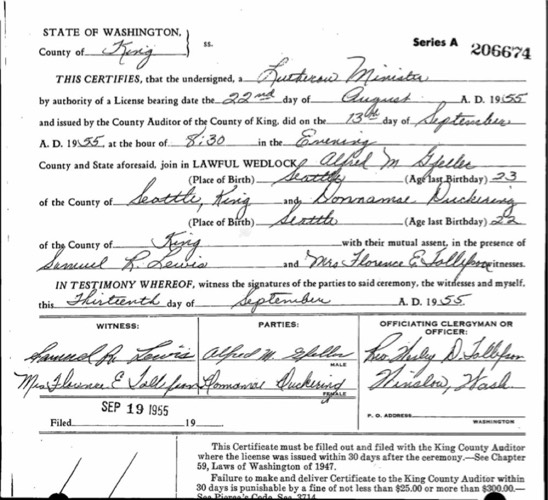 STATE OF WASHINGTON,
County of King
ss.
Series A 206674
THIS CERTIFIES, that the undersigned, a Lutheran Minister
by authority of a License bearing date the 22nd day of August A. D. 1955
and issued by the County Auditor of the County of King, did on the 13th day of September
A. D. 1955 at the hour of 8:30 in the Evening
County and State aforesaid, join in LAWFUL WEDLOCK Alfred M Gfeller
(Place of Birth) Seattle (Age last Birthday) 23
of the County of Seattle, King and Donnamae Duckering
(Place of Birth) Seattle (Age last Birthday) 22
of the County of King with their mutual assent, in the presence of
Samuel R. Lewis and Mrs Florence E Tollefson witnesses.
IN TESTIMONY WHEREOF, witness the signatures of the parties to said ceremony, the witnesses and myself,
this Thirteenth day of September A. D. 1955
WITNESS: PARTIES: OFFICIATING CLERGYMAN OR OFFICER:
Samuel R. Lewis Alfred M. Gfeller Rev Wesley D. Tollefson
MALE
Mrs. Florence E Tollefson Donnamae Duckering Winslow, Wash
FEMALE
SEP 19 1955
Filed 19
P. O. ADDRESS WASHINGTON
This Certificate must be filled out and filed with the King County Auditor
where the license was issued within 30 days after the ceremony.—See Chapter
59, Laws of Washington of 1947.
Failure to make and deliver Certificate to the King County Auditor within
30 days is punishable by a fine of not less than $25.00 or more than $300.00.—
See Pierce's Code, Sec. 3714.